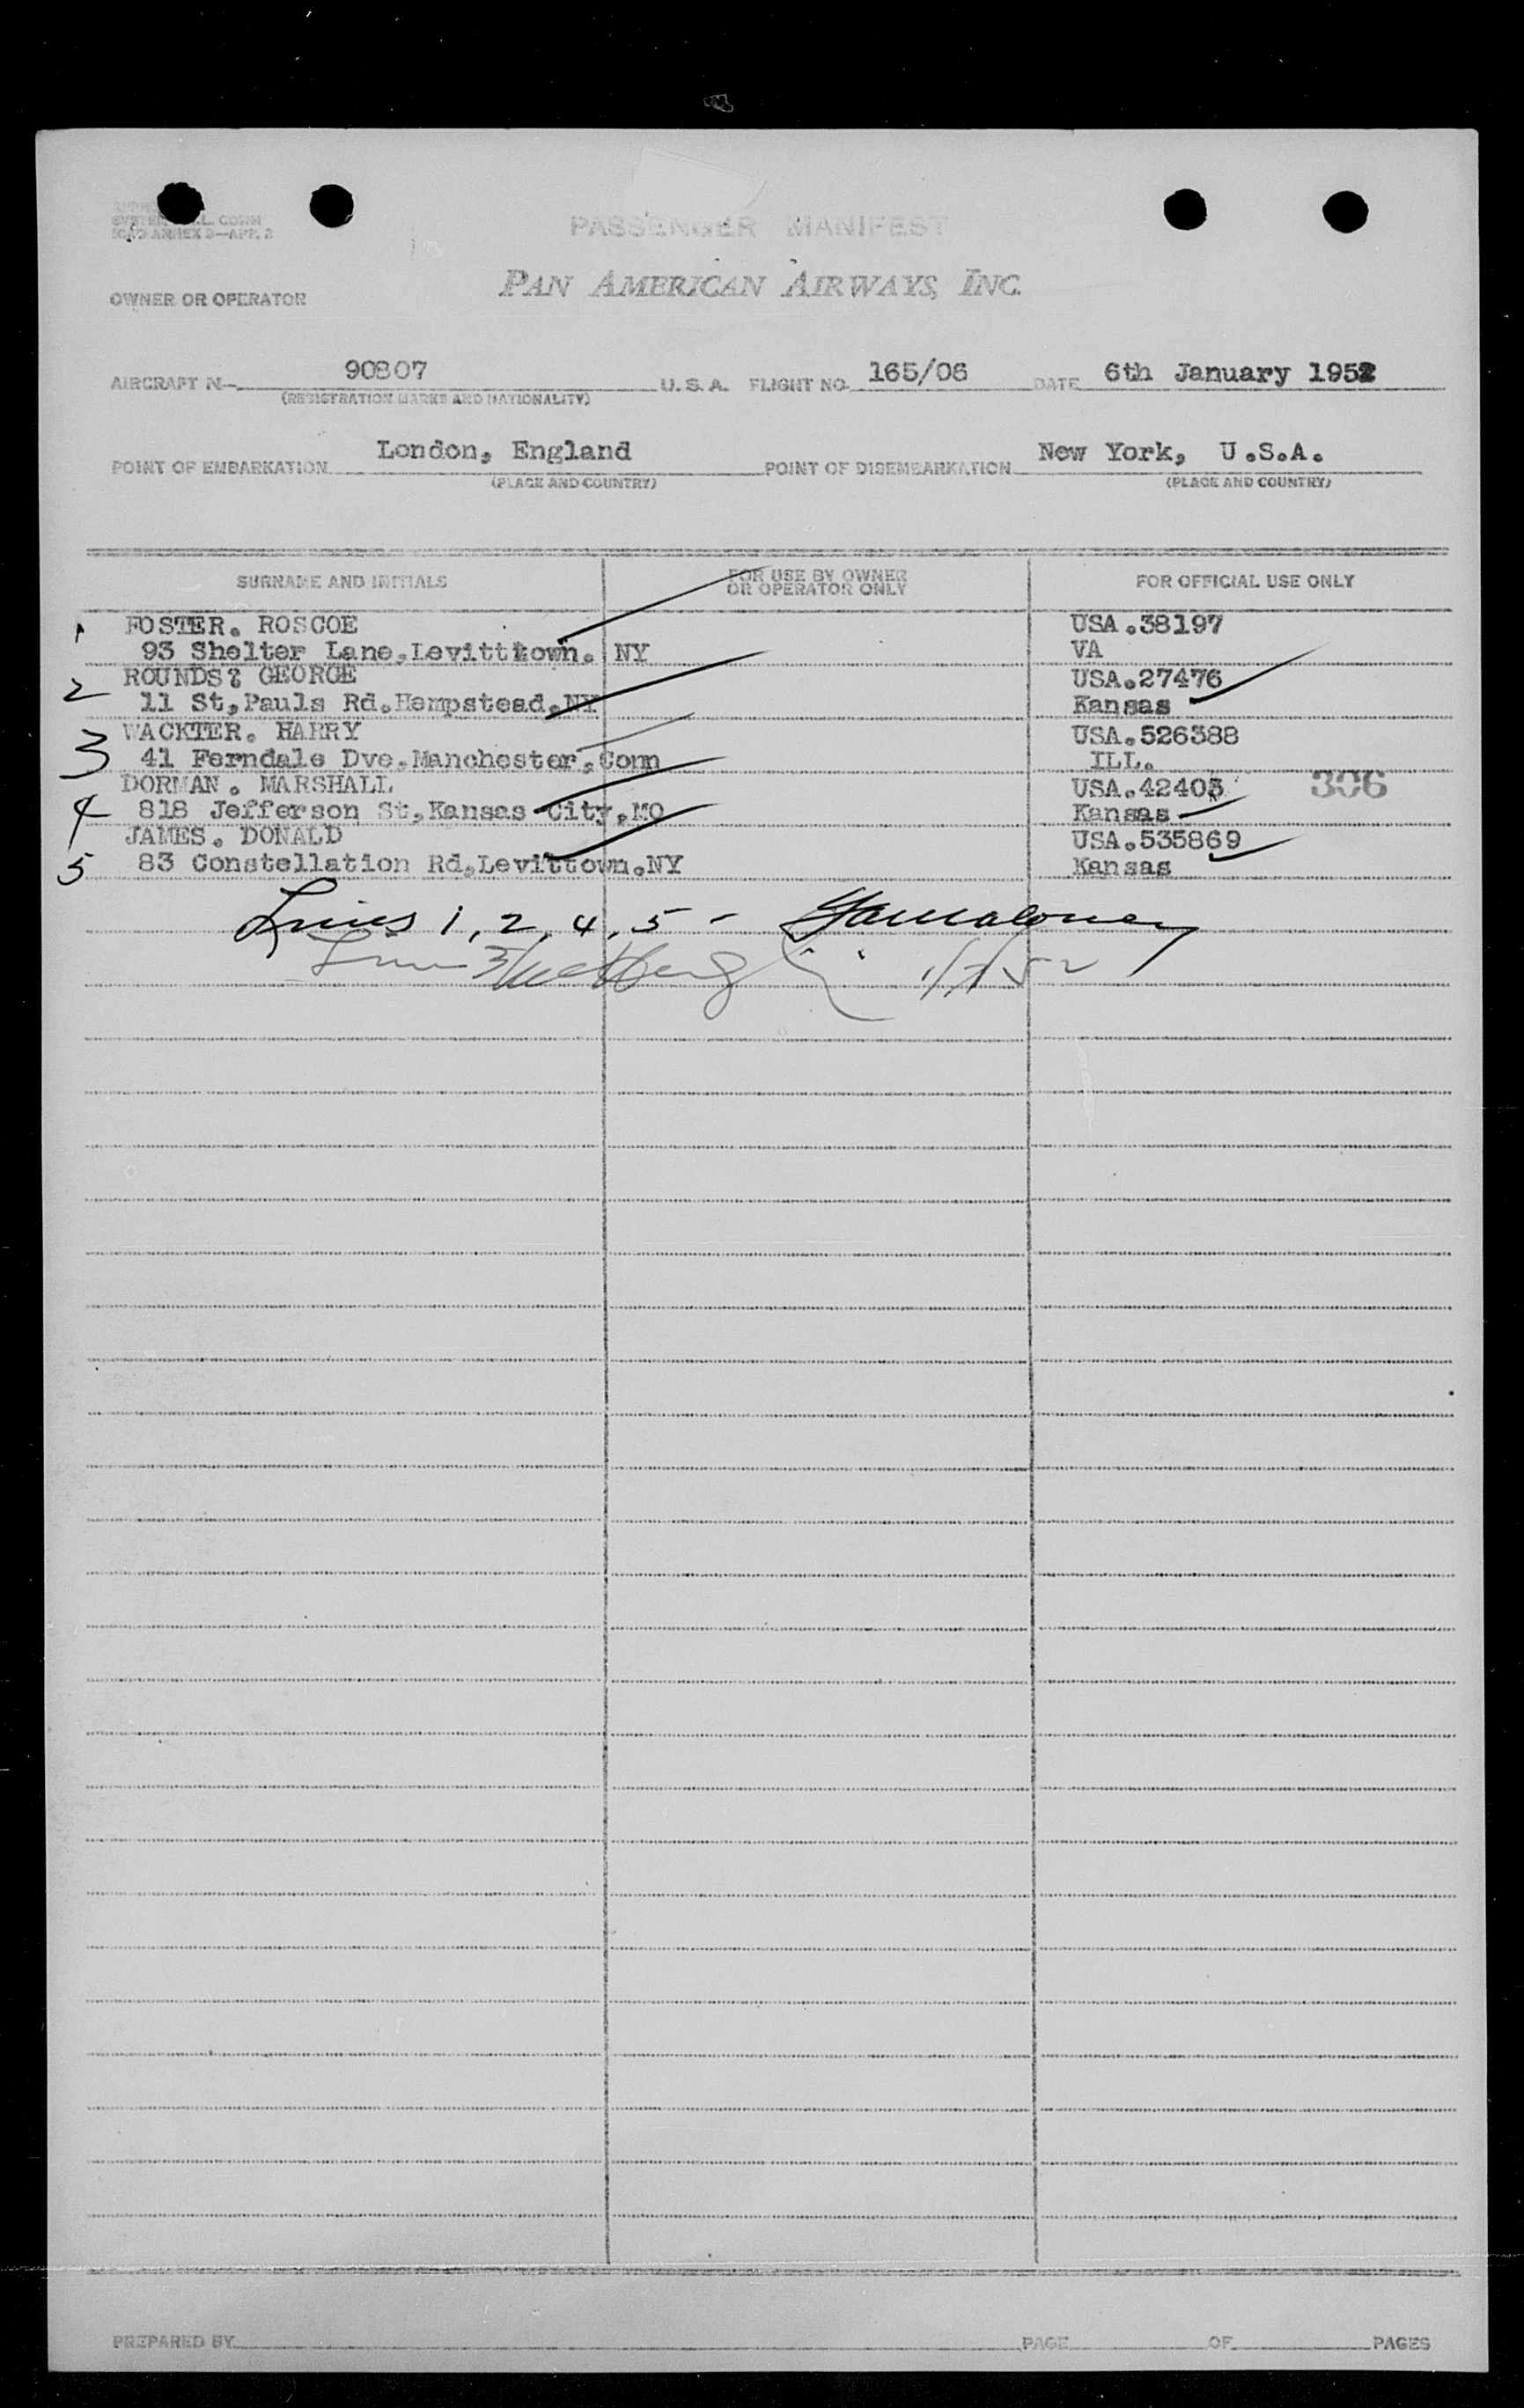 L. CONN
ICAO ANNEX 9—APP. 2
PASSENGER MANIFEST
PAN AMERICAN AIRWAYS, INC.
OWNER OR OPERATOR
AIRCRAFT N— 90807 U. S. A. FLIGHT NO. 165/06 DATE 6th January 1952
(REGISTRATION MARKS AND NATIONALITY)
POINT OF EMBARKATION London, England POINT OF DISEMBARKATION New York, U.S.A.
(PLACE AND COUNTRY) (PLACE AND COUNTRY)
SURNAME AND INITIALS FOR USE BY OWNER OR OPERATOR ONLY FOR OFFICIAL USE ONLY
1 FOSTER. ROSCOE USA.38197
93 Shelter Lane.Levitttown. NY VA
2 ROUNDS& GEORGE USA.27476
11 St,Pauls Rd.Hempstead.NY Kansas
3 WACKTER. HARRY USA.526388
41 Ferndale Dve.Manchester.Conn ILL.
4 DORMAN. MARSHALL USA.42403 306
818 Jefferson St,Kansas City,MO Kansas
5 JAMES. DONALD USA.535869
83 Constellation Rd.Levittown.NY Kansas
Lines 1, 2, 4, 5 -
Line 3 1/7/52
PREPARED BY PAGE OF PAGES